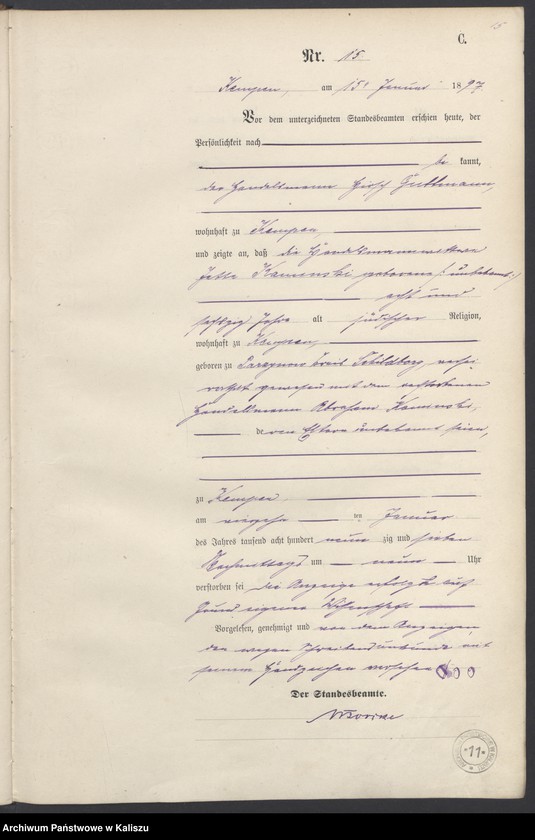 15
C.
Nr. 15
Kempen, am 15. Januar 1897
Vor dem unterzeichneten Standesbeamten erschien heute, der
Persönlichkeit nach
be kannt,
der Handelsmann Hirsch Guttmann,
wohnhaft zu Kempen,
und zeigte an, daß die Handelsmannwittwe
Jette Kamenski geborene (: unbekannt :)
acht und
sechzig Jahre alt jüdischer Religion,
wohnhaft zu Kempen,
geboren zu Kreis Schildberg, verhei
rathet gewesen mit dem verstorbenen
Handelsmann Abraham Kamenski,
deren Eltern unbekannt seien,
zu Kempen
am vierzehn ten Januar
des Jahres tausend acht hundert neun zig und sieben
Nachmittags um neun Uhr
verstorben sei die Anzeige erfolgte auf
Grund eigener Wissenschaft
Vorgelesen, genehmigt und von dem Anzeigen
den wegen Schreibensunkunde mit
seinem Handzeichen versehen ooo
Der Standesbeamte.
11
Archiwum Państwowe w Kaliszu